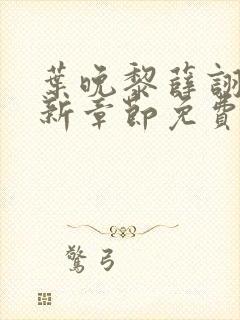 葉晚黎薛詡
新章節免費
驚弓